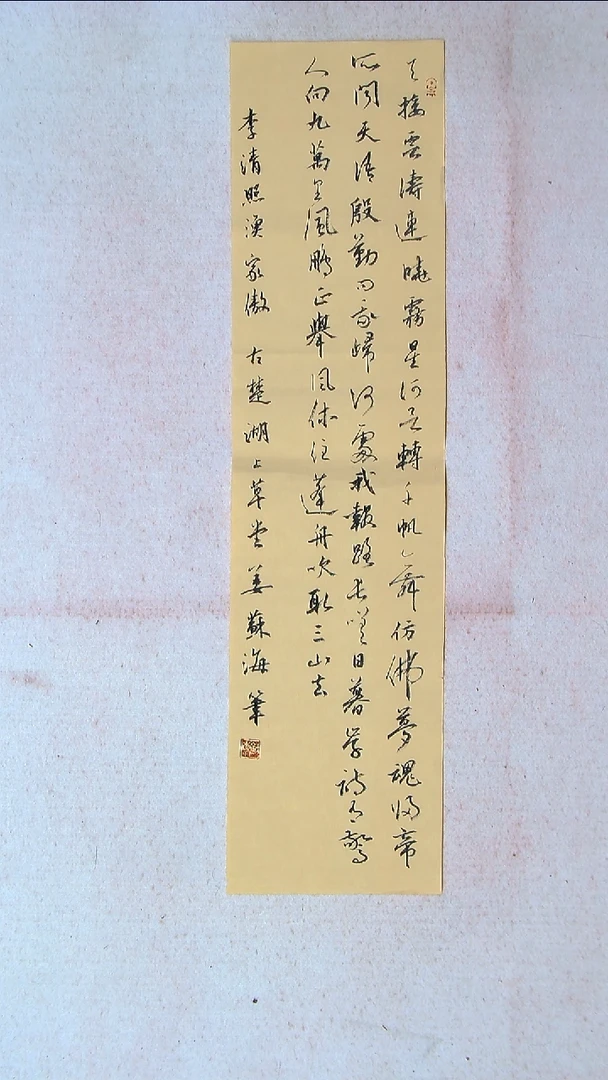 天接雲濤連曉霧星河欲轉千帆舞仿佛夢魂歸帝
所聞天語殷勤問我歸何處我報路長嗟日暮學詩有驚
人句九萬里風鵬正舉風休住蓬舟吹取三山去
李清照漁家傲 古楚湖上草堂姜蘇海筆